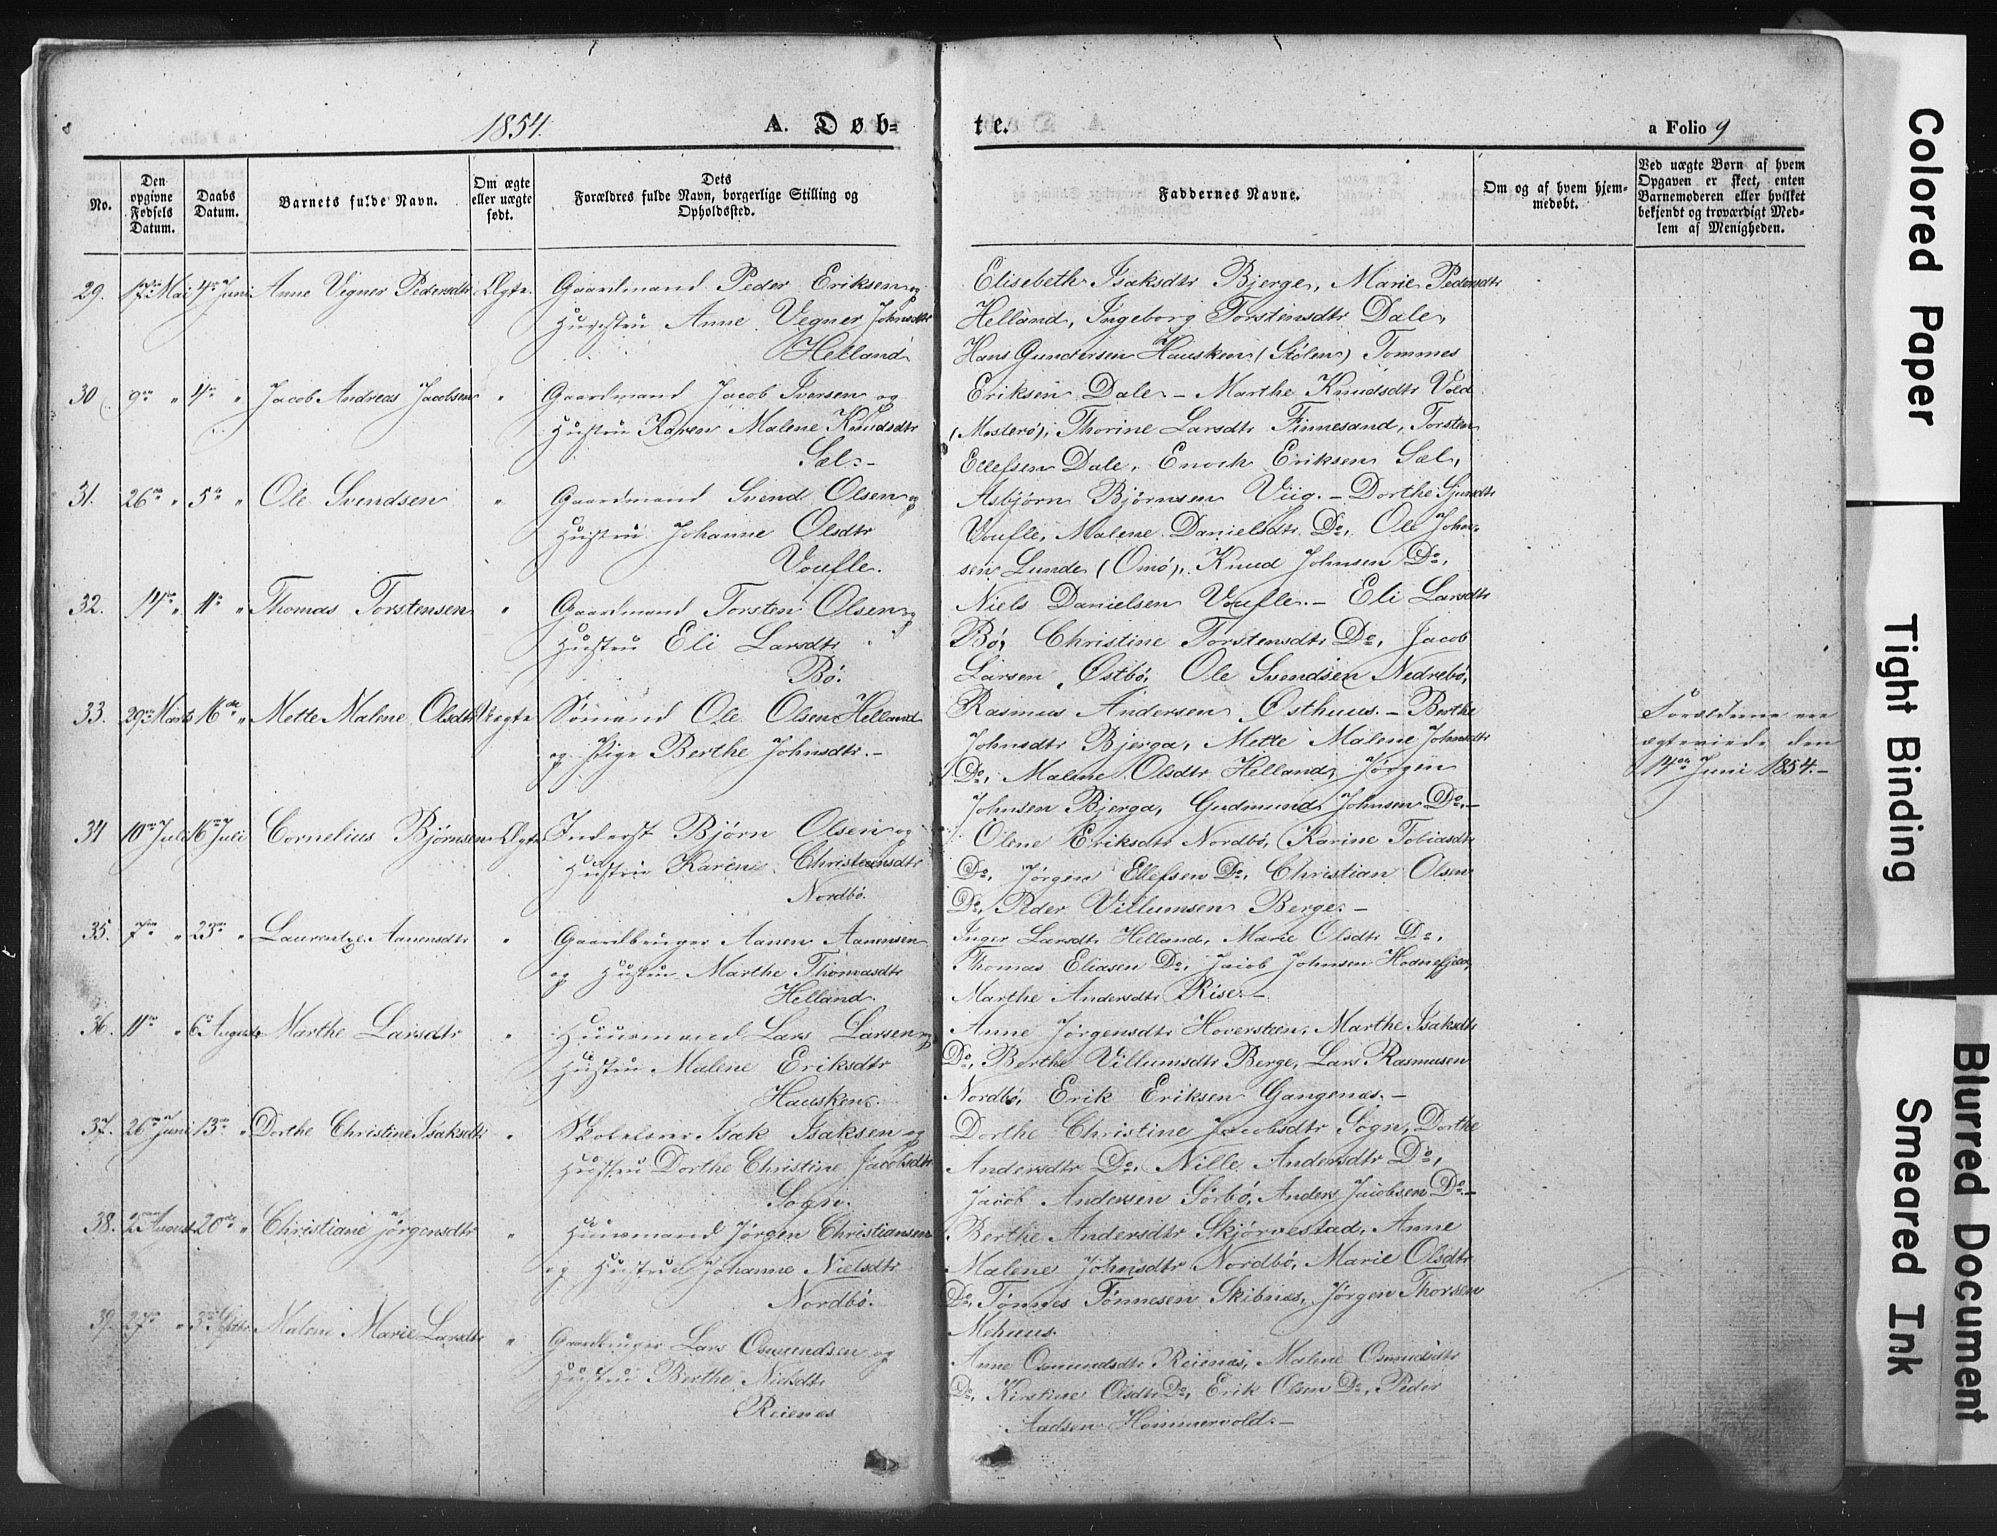 8
1854.
A. Døb-
te.
a Folio 9
No.
Den opgivne Fødsels Datum.
Daabs Datum.
Barnets fulde Navn.
Om ægte eller uægte født.
Dets
Forældres fulde Navn, borgerlige Stilling og
Opholdssted.
Faddernes Navne.
Om og af hvem hjem-
medøbt.
Ved uægte Børn af hvem
Opgaven er skeet, enten
Barnemoderen eller hvilket
bekjendt og troværdigt Med-
lem af Menigheden.
29. Mai 4de Juni Anne Vegner Pedersdtr Ægte. Gaardmand Peder Eriksen og
Hustru Anne Vegner Johnsdtr
Helland
Elisebeth Isaksdtr Bjerge, Marie Pedersdtr
Helland, Ingeborg Torstensdtr Dale,
Hans Gundersen Hausken (Stølen) Tommes
30 9de " 4de " Jacob Andreas Jacobsen " Gaardmand Jacob Iversen og
Hustru Karen Malene Knudsdtr
Sæl.-
Eriksen Dale. - Marthe Knudsdtr Vold
(Mosterø), Thorine Larsdtr Finnesand, Torsten
Ellefsen Dale, Enoch Eriksen Sæl,
31. 26de " 5te " Ole Svendsen " Gaardmand Svend Olsen og
Hustru Johanne Olsdtr
Voufle.
Asbjørn Bjørnsen Viig. - Dorthe Sjursdtr
Voufle, Malene Danielsdtr Do, Ole John-
sen Lunde (Omø), Knud Johnsen Do,
32. 14de " 11te " Thomas Torstensen " Gaardmand Torsten Olsen og
Hustru Eli Larsdtr
Bø.
Niels Danielsen Voufle. - Eli Larsdtr
Bø, Christine Torstensdtr Do, Jacob
Larsen Østbø, Ole Svendsen Nedrebø,
33. 29de Marts 16de " Mette Malene Olsdtr Uægte Sømand Ole Olsen Helland
og Pige Berthe Johnsdtr.-
Rasmus Andersen Østhuus. - Berthe
Johnsdtr Bjerga, Mette Malene Johnsdtr
Do, Malene Olsdtr Helland, Jørgen
Johnsen Bjerga, Gudmund Johnsen Do.-
Forældrene ere
ægteviede den
14de Juni 1854.-
34 10de Juli 16de Juli Cornelius Bjørnsen Ægte Inderst Bjørn Olsen og
Hustru Karine Christensdtr
Nordbø.
Olene Eriksdtr Nordbø, Karine Tobiasdtr
Do, Jørgen Ellefsen Do, Christian Olsen
Do, Peder Villumsen Berge.-
35. 7de " 23de " Laurentze Aanensdtr " Gaardbruger Aanen Aanensen
og Hustru Marthe Thomasdtr
Helland.
Inger Larsdtr Helland, Marie Olsdtr Do,
Thomas Eliasen Do, Jacob Johnsen Hodnefjeld,
Marthe Andersdtr Rise.-
36. 11te " 6te August Marthe Larsdtr " Huusmand Lars Larsen og
Hustru Malene Eriksdtr
Hausken.
Anne Jørgensdtr Hoversteen, Marthe Isaksdtr
Do, Berthe Villumsdtr Berge, Lars Rasmusen
Nordbø, Erik Eriksen Gangenæs.-
37. 26de Juni 13de " Dorthe Christine Isaksdtr " Skolelærer Isak Isaksen og
Hustru Dorthe Christine Jacobsdtr
Sogn.
Dorthe Christine Jacobsdtr Sogn, Dorthe
Andersdtr Do, Nille Andersdtr Do,
Jacob Andersen Sørbø, Anders Jacobsen Do.-
38. August 20de " Christiane Jørgensdtr " Huusmand Jørgen Christiansen
og Hustru Johanne Nielsdtr
Nordbø.
Berthe Andersdtr Skjørvestad, Anne
Malene Johnsdtr Nordbø, Marie Olsdtr
Do, Tønnes Tønnesen Skibnæs, Jørgen Thorsen
Mehuus.
39. 27de " 3de Septbr Malene Marie Larsdtr " Gaardbruger Lars Osmundsen og
Hustru Berthe Nielsdtr
Reienes
Anne Osmundsdtr Reienæs, Malene Osmundsdtr
Do, Kirstine Olsdtr Do, Erik Olsen Do, Peder
Aadsen Hommervold.-
Colored Paper
Tight Binding
Blurred Document
Smeared Ink